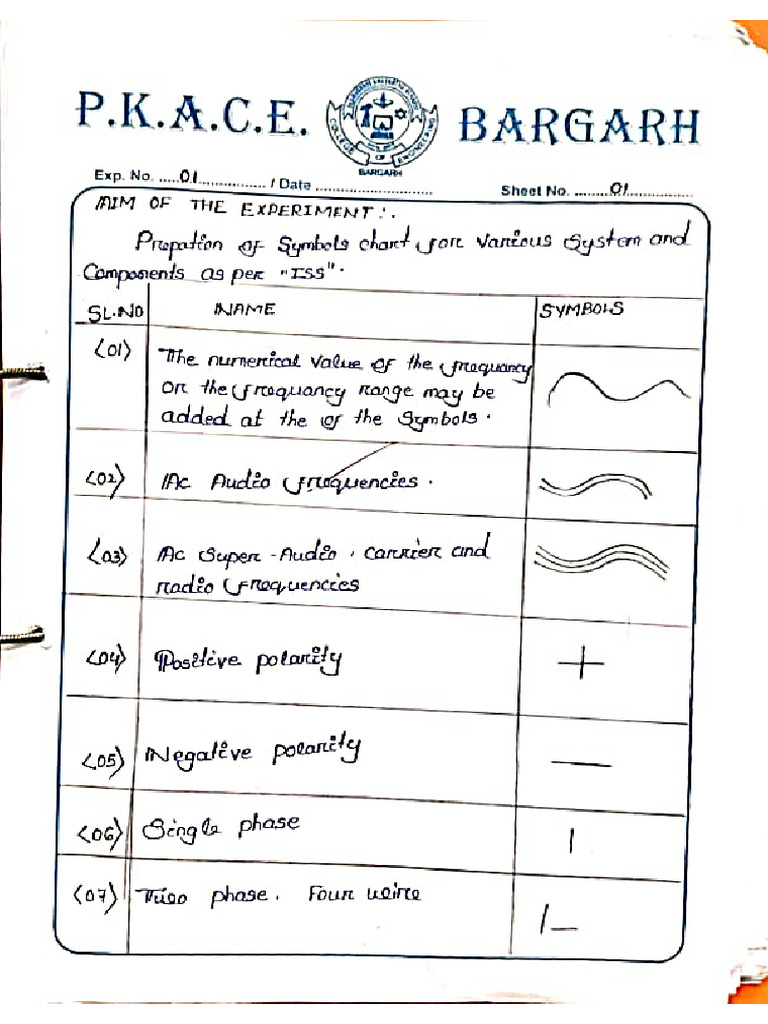 P.K.A.C.E. BARGARH
BARGARH
Exp. No. .....01................ / Date ............................ Sheet No. .........01................
AIM OF THE EXPERIMENT:.
Prepation of Symbols chart for various System and
Components as per "ISS".
SL.NO NAME SYMBOLS
<01> The numerical value of the frequancy
or the frequancy range may be
added at the of the symbols.
<02> Ac Audio frequencies.
<03> Ac Super-Audio, carrier and
radio frequencies
<04> Positive polarity +
<05> Negative polarity —
<06> Single phase |
<07> Two phase. Four wire |—